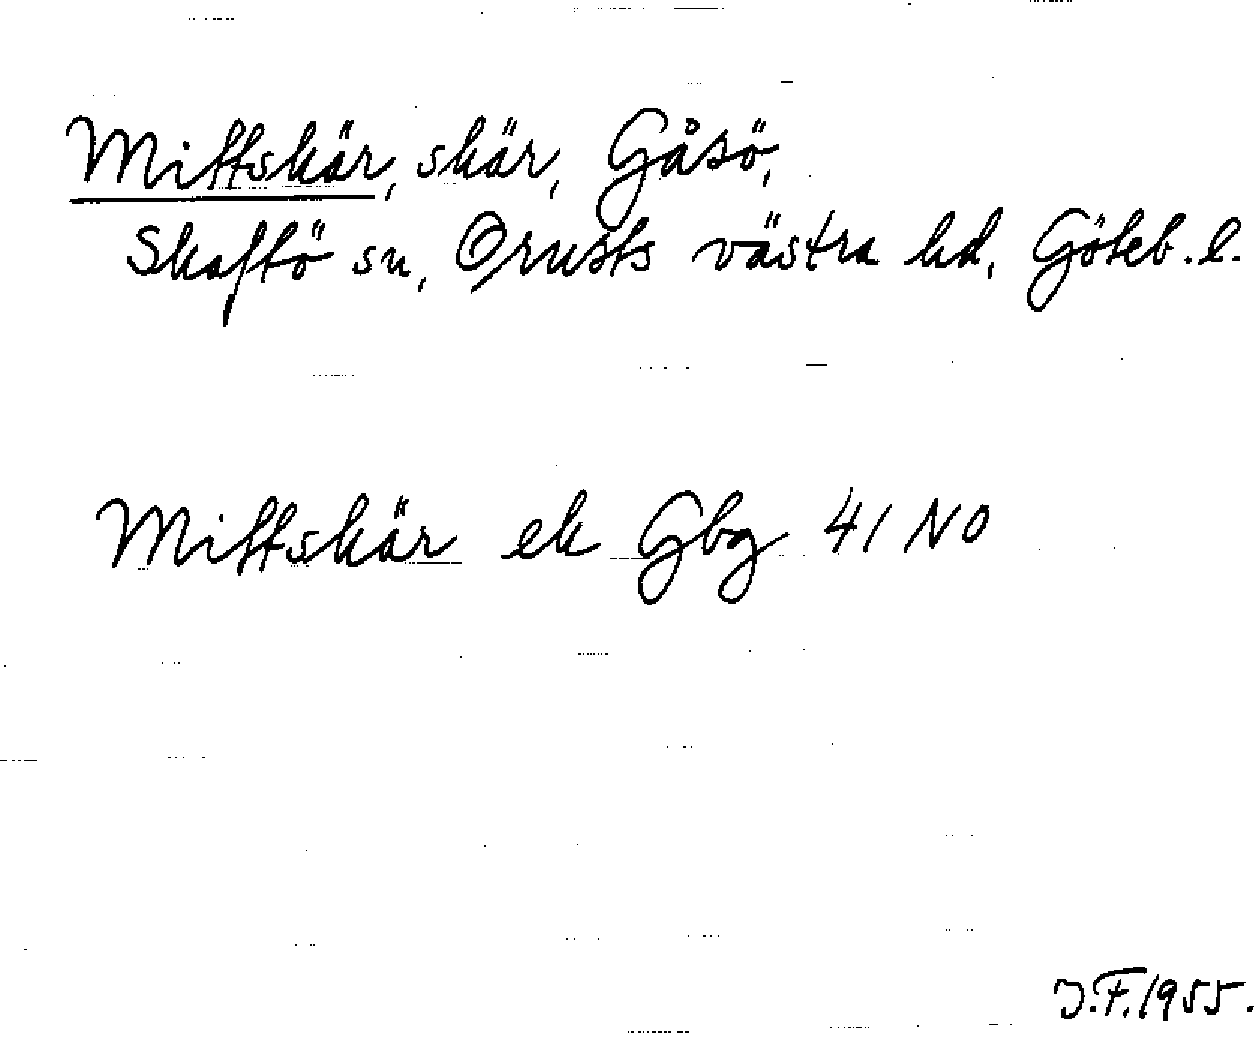 Miffskär, skär, Gåsö,
Skaftö sn, Orusts västra hd, Göteb. l.
Miffskär ek Gbg 41 NO
J.F. 1955.